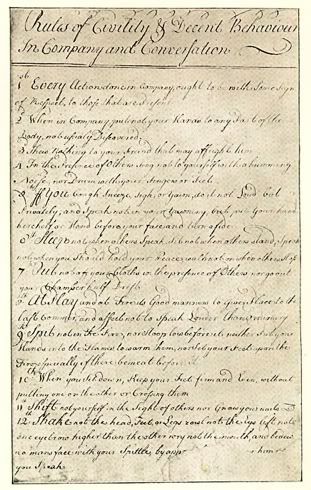 Rules of Civility & Decent Behaviour
In Company and Conversation
1st Every Action done in Company, ought to be with Some Sign
of Respect, to those that are Present
2 When in Company, put not your Hands to any Part of the
Body, not usualy Discovered
3 Shew Nothing to your Freind that may affright him
4 In the Presence of Others Sing not to yourself with a humming
Noise, nor Drum with your Fingers or Feet
5 If You Cough, Sneeze, Sigh, or Yawn, do it not Loud but
Privately; and Speak not in your Yawning, but put Your hand
kercheif or Hand before your face and turn aside
6th Sleep not when others Speak, Sit not when others stand, Speak
not when you Should hold your Peace, walk not on when others Stop
7th Put not off your Cloths in the presence of Others, nor go out
your Chamber half Drest
8th At Play and at Fire its Good manners to give Place to the
last Commer, and affect not to Speak Louder than ordinary
9th Spit not in the Fire, nor Stoop low before it neither Put your
Hands into the Flames to warm them, nor Set your Feet upon the
Fire especially if there be meat before it
10th When you Sit down, Keep your Feet firm and Even, without
putting one on the other or Crossing them
11th Shift not yourself in the Sight of others nor Gnaw your nails
12th Shake not the head, Feet, or Legs rowl not the Eys lift not
one eyebrow higher than the other wry not the mouth, and bedew
no mans face with your Spittle, by
you Speak